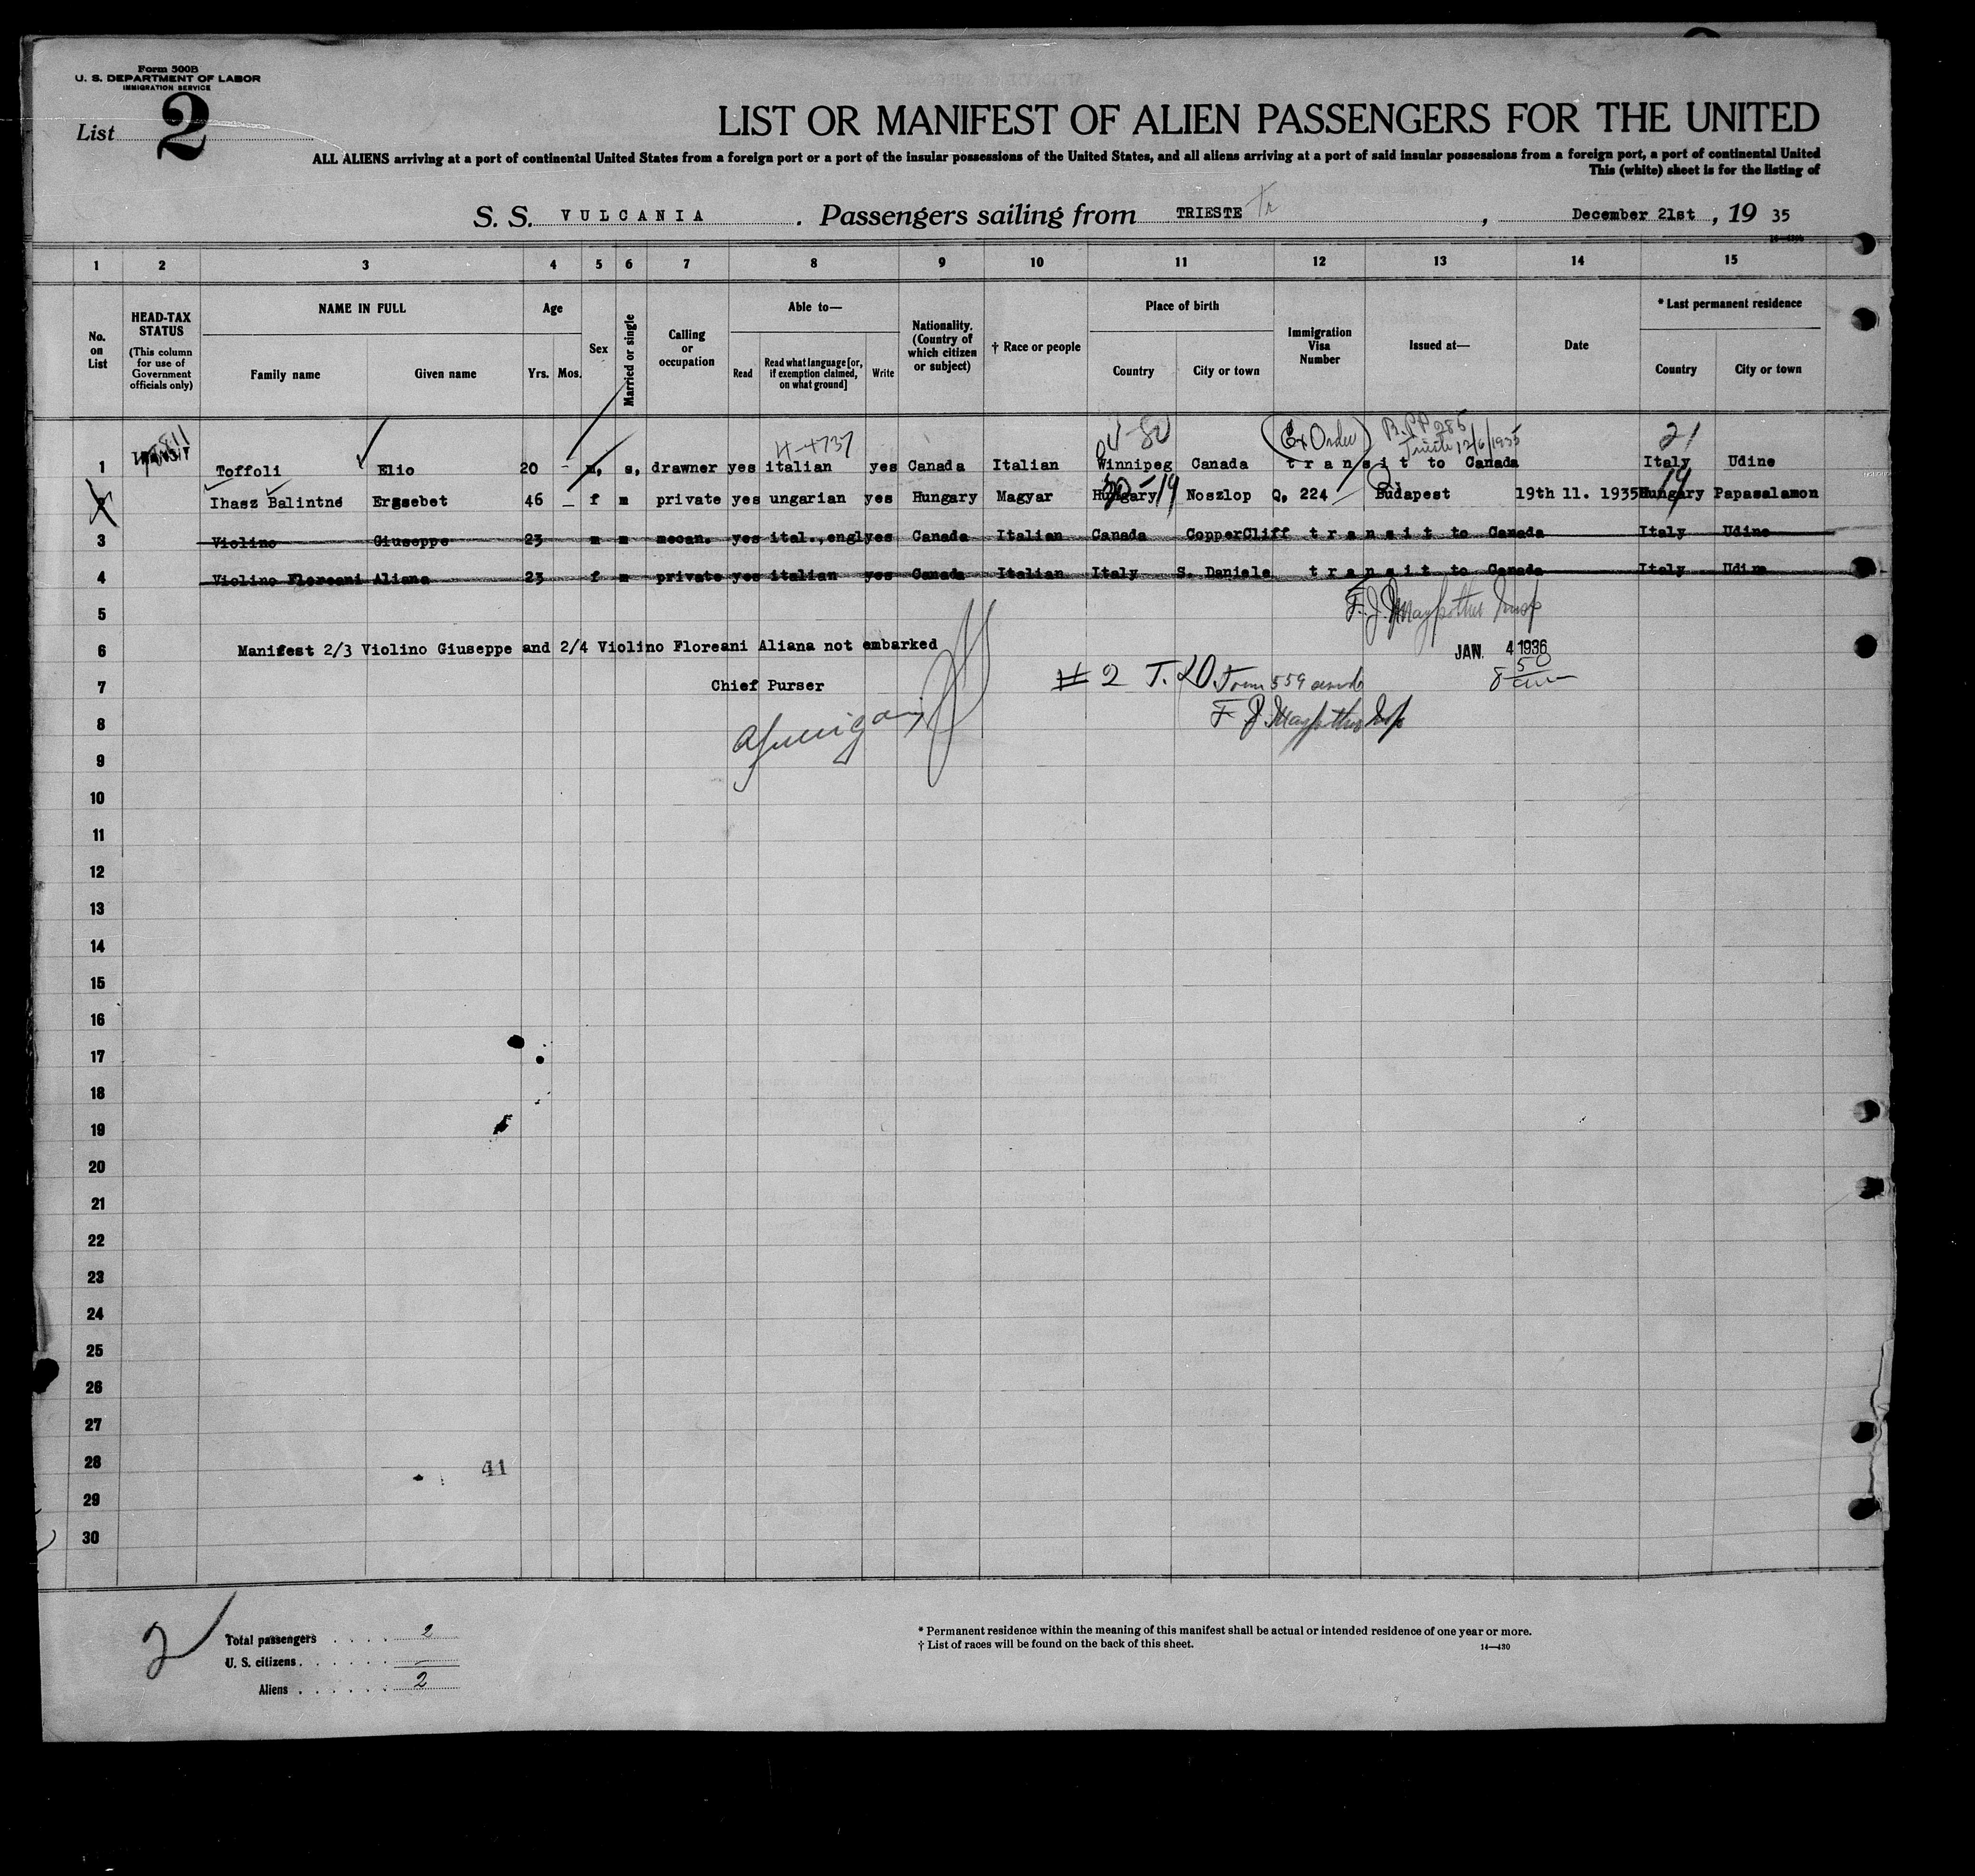 Form 500B
U. S. DEPARTMENT OF LABOR
IMMIGRATION SERVICE
List 2
LIST OR MANIFEST OF ALIEN PASSENGERS FOR THE UNITED
ALL ALIENS arriving at a port of continental United States from a foreign port or a port of the insular possessions of the United States, and all aliens arriving at a port of said insular possessions from a foreign port, a port of continental United
This (white) sheet is for the listing of
S. S. VULCANIA . Passengers sailing from TRIESTE Tr , December 21st , 19 35
1 2 3 4 5 6 7 8 9 10 11 12 13 14 15
No. on List
HEAD-TAX STATUS
(This column for use of Government officials only)
NAME IN FULL
Family name Given name
Age
Yrs. Mos.
Sex
Married or single
Calling or occupation
Able to—
Read Read what language [or, if exemption claimed, on what ground] Write
Nationality. (Country of which citizen or subject)
† Race or people
Place of birth
Country City or town
Immigration Visa Number
Issued at—
Date
* Last permanent residence
Country City or town
H-4737 Ex Order 285 21
Trieste 12/6/1935
1 Toffoli Elio 20 - m, s, drawner yes italian yes Canada Italian Winnipeg Canada transit to Canada Italy Udine
2 Ihasz Balintné Erzsebet 46 — f m private yes ungarian yes Hungary Magyar Hungary Noszlop Q. 224 Budapest 19th 11. 1935 Hungary Papasalamon
3 Violino Giuseppe 23 m m mecan. yes ital., engl yes Canada Italian Canada CopperCliff transit to Canada Italy Udine
4 Violino Floreani Aliana 23 f m private yes italian yes Canada Italian Italy S. Daniele transit to Canada Italy Udine
5
6 Manifest 2/3 Violino Giuseppe and 2/4 Violino Floreani Aliana not embarked JAN. 4 1936
7 Chief Purser # 2 Form 559 8 50 am
8
9
10
11
12
13
14
15
16
17
18
19
20
21
22
23
24
25
26
27
28 41
29
30
2
Total passengers . . . . 2
U. S. citizens . . . . . . -
Aliens . . . . . . 2
* Permanent residence within the meaning of this manifest shall be actual or intended residence of one year or more.
† List of races will be found on the back of this sheet. 14—430